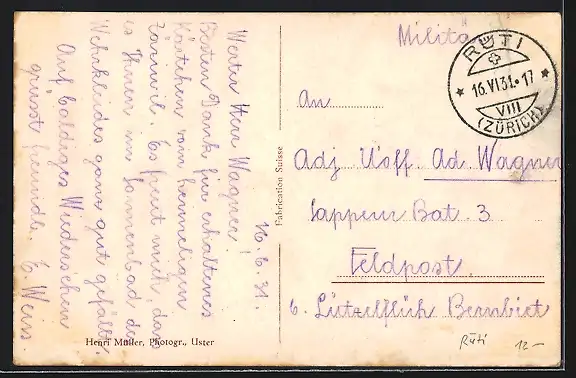 16.6.31.
Werter Herr Wagner.
Besten Dank für erhaltenes
Kärtchen vom heimeligen
Es freut mich, dass
es Ihnen im Sonnenbad des
Wehrkleides ganz gut gefällt.
Auf baldiges Wiedersehen
grüsst freundl. E. Weiss
Henri Müller, Photogr., Uster
Fabrication Suisse
Militä
RÜTI
16.VI.31.-17
VIII
(ZÜRICH)
An
Adj. Uoff. Ad. Wagner
Sappeur Bat. 3
Feldpost.
b. Lützelflüh Bernbiet
Rüti 12.-